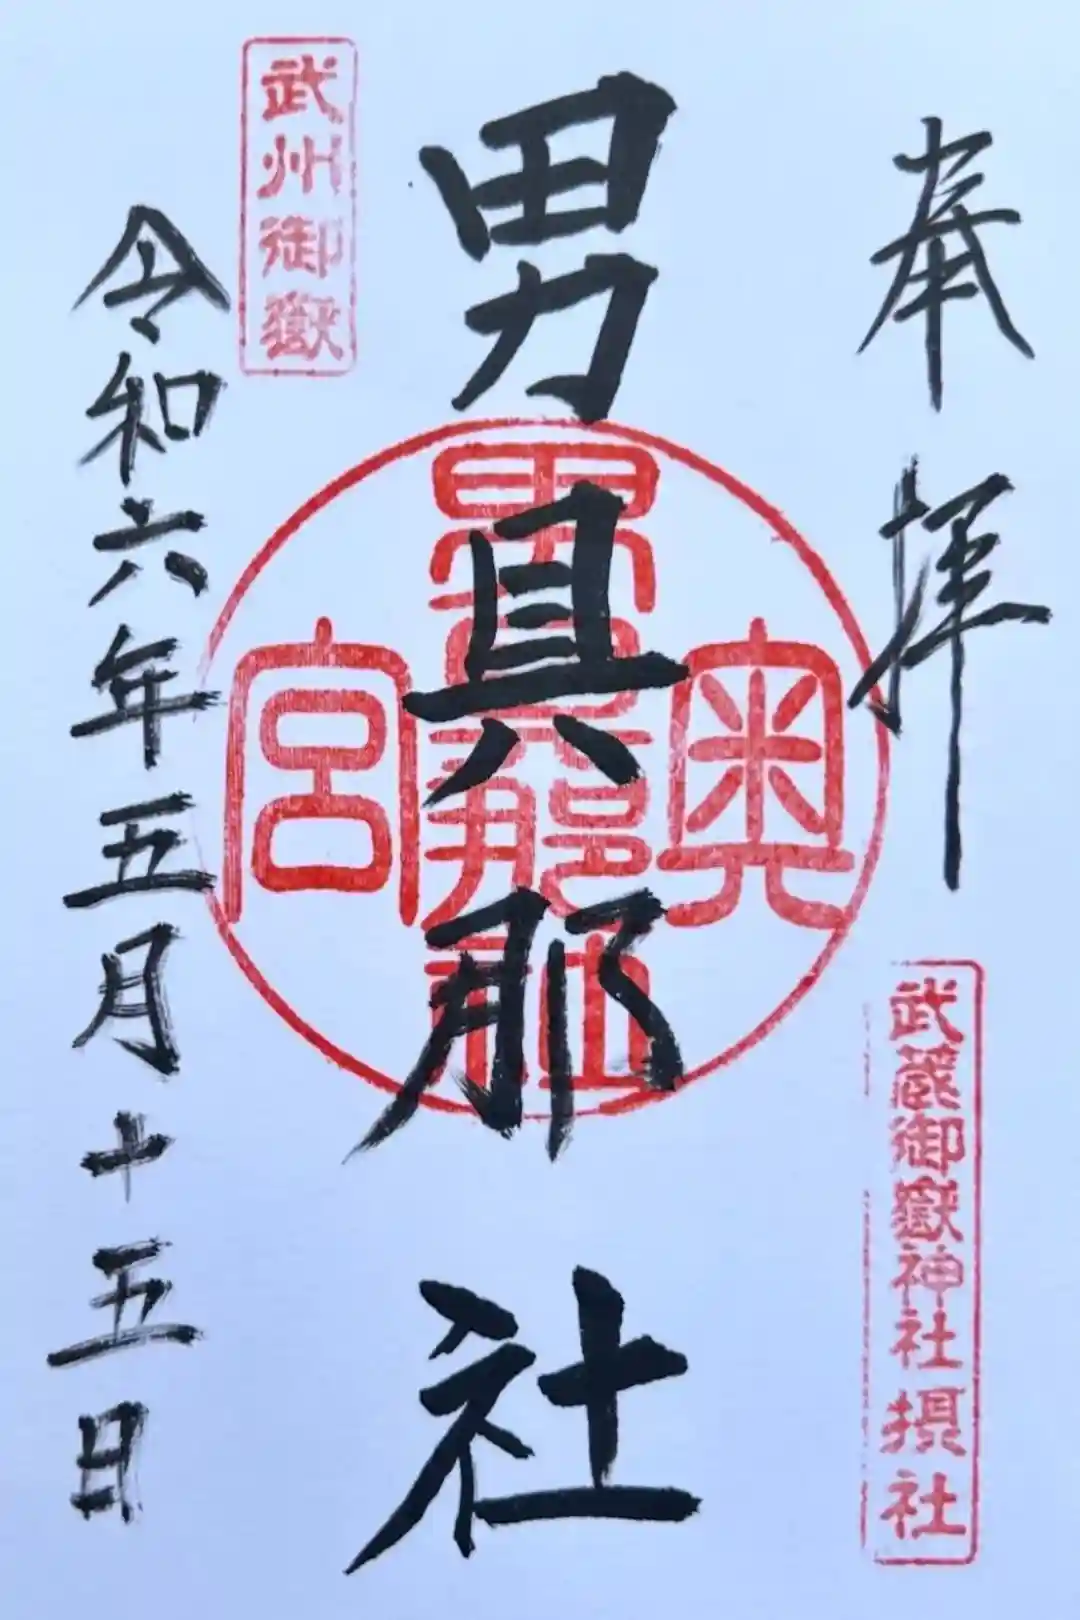 奉拝
武蔵御嶽神社摂社
男具那社
奥宮
男具那社
武州御嶽
令和六年五月十五日